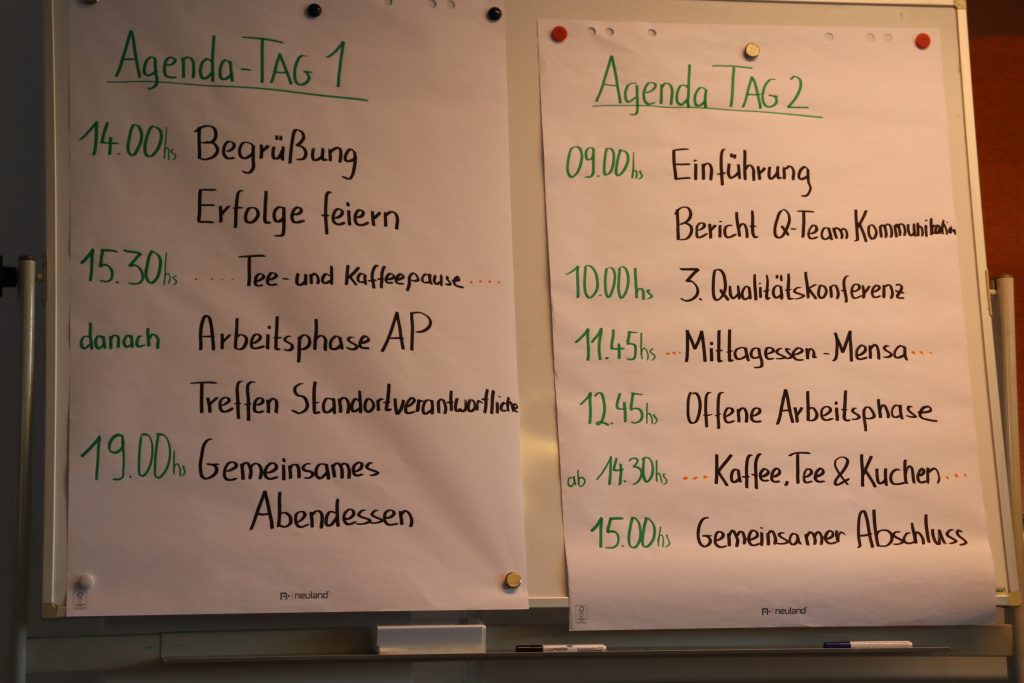 Agenda-TAG 1
14.00hs Begrüßung
Erfolge feiern
15.30hs .... Tee- und Kaffeepause ....
danach Arbeitsphase AP
Treffen Standortverantwortliche
19.00hs Gemeinsames
Abendessen
neuland
Agenda TAG 2
09.00hs Einführung
Bericht Q-Team Kommunikation
10.00hs 3. Qualitätskonferenz
11.45hs ... Mittagessen - Mensa ...
12.45hs Offene Arbeitsphase
ab 14.30hs ... Kaffee, Tee & Kuchen ...
15.00hs Gemeinsamer Abschluss
neuland